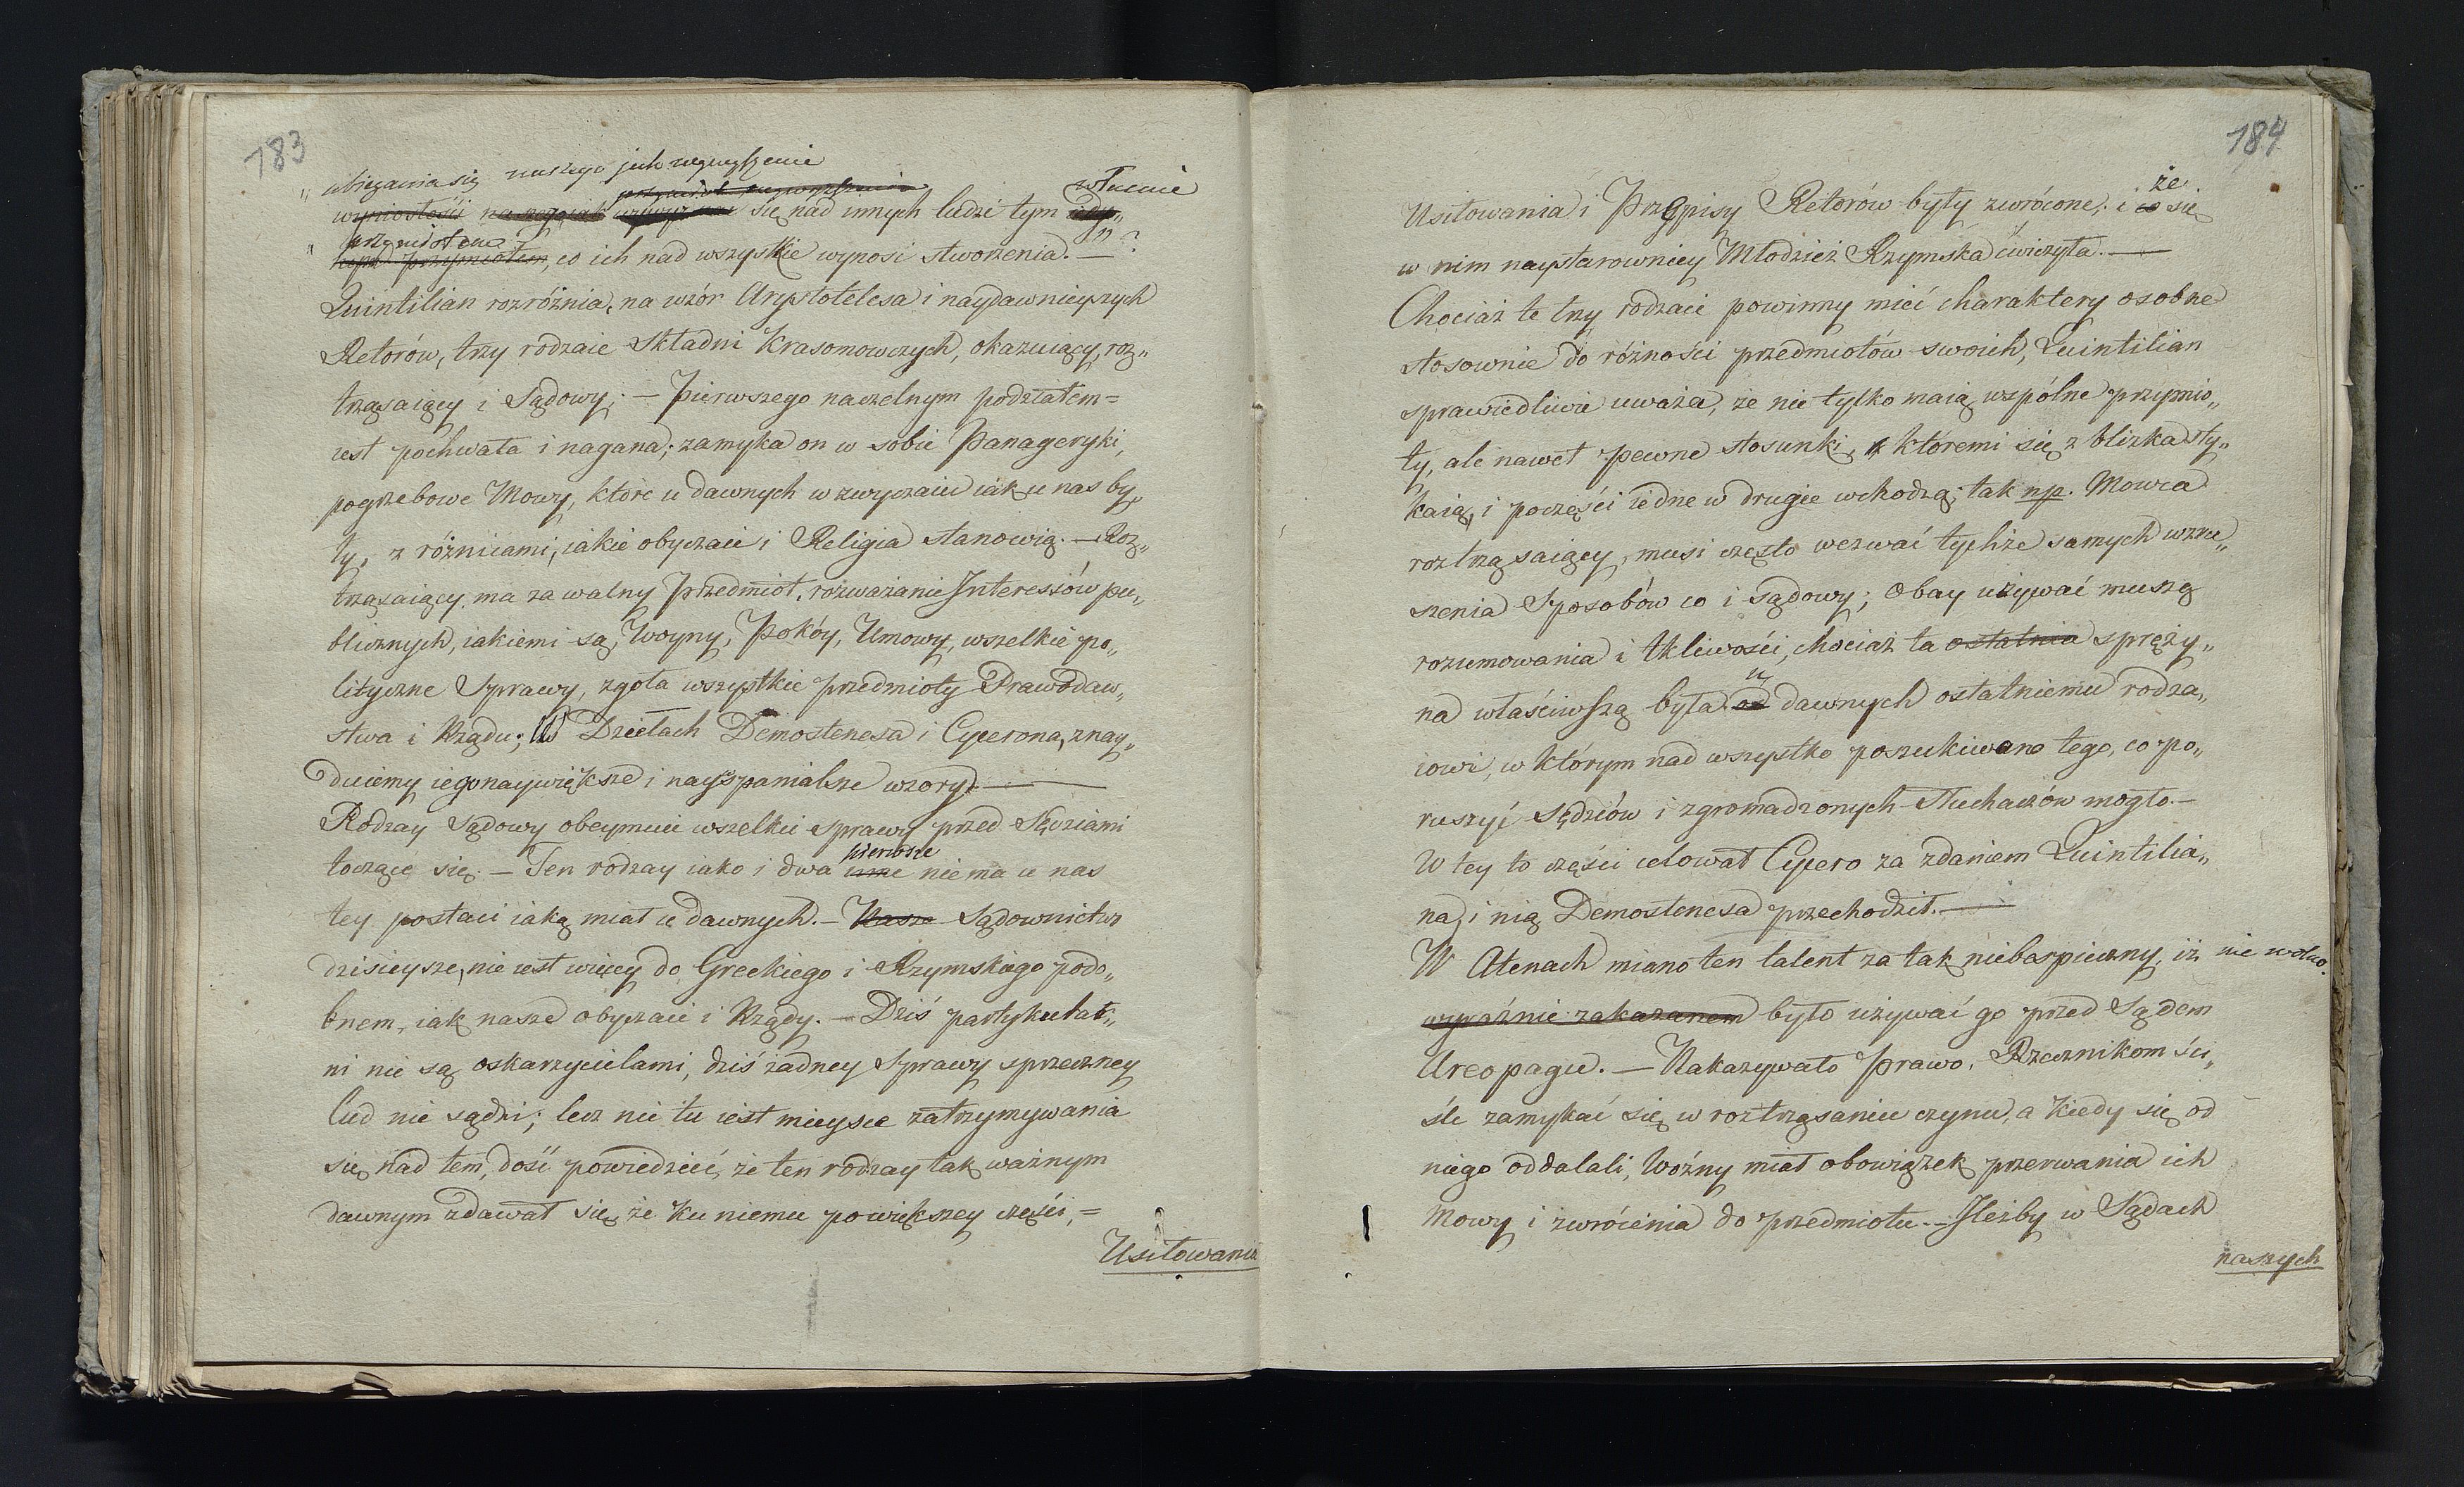 183
„ ubiegania się naszego jak wywyższenie
właśnie
wyniosłości naszego, jak się nad innych ludzi tym iedy„
przymiotem
„ przymiotem, co ich nad wszystkie wynosi stworzenia." — ?
Quintilian rozróżnia, na wzór Arystotelesa i naydawnieyszych
Retorów, trzy rodzaie Składni Krasomowczych, okazuiący, roz„
trząsaiący i Sądowy; — Pierwszego naczelnym podziałem =
iest pochwała i nagana; zamyka on w sobie Panageryki,
pogrzebowe Mowy, które u dawnych w zwyczaiu iak u nas by„
ły, z różnicami, iakie obyczaie i Religia stanowią. — Roz„
trząsaiący, ma za walny Przedmiot, rozważanie Interessów pu„
blicznych, iakiemi są, Woyny, Pokóy, Umowy, wszelkie po„
lityczne Sprawy, zgoła wszystkie przedmioty Prawodaw„
stwa i Rządu; W Dziełach Demostenesa i Cycerona, znay„
duiemy iego naywiększe i nayspanialsze wzory. —
Rodzay Sądowy obeymuie wszelkie sprawy przed Sędziami
pierwsze
toczące się. — Ten rodzay iako i dwa inne niema u nas
tey postaci iaką miał u dawnych. — Nasze Sądownictwo
dzisieysze, nie iest więcey do Greckiego i Rzymskiego podo„
bnem, iak nasze obyczaie i Rządy. — Dziś partykular„
ni nie są oskarzycielami, dziś żadney Sprawy sprzeczney
lud nie sądzi; lecz nie tu iest mieysce zatrzymywania
się nad tem, dość powiedzieć, że ten rodzay tak ważnym
dawnym zdawał się, że ku niemu powiększey części, =
Usiłowania
184
że
Usiłowania i Przepisy Retorów były zwrócone, i co się
w nim naystarowniey Młodzież Rzymska ćwiczyła. —
Chociaż te trzy rodzaie powinny mieć charaktery osobne
stosownie do różności przedmiotów swoich, Quintilian
sprawiedliwie uważa, że nie tylko maią wspólne przymio„
ty, ale nawet pewne stosunki, któremi się z blizka sty„
kaią, i poczęści iedne w drugie wchodzą; tak np. Mowca
roztrząsaiący, musi często wezwać tychże samych wzru„
szenia Sposobów co i Sądowy; Obay używać muszą
rozumowania i tkliwości, chociaż ta ostatnia spręży„
u
na właściwszą była od dawnych ostatniemu rodza„
iowi, w którym nad wszystko poszukiwano tego, co po„
ruszyć Sędziów i zgromadzonych Słuchaczów mogło. —
W tey to części celował Cycero za zdaniem Quintilia„
na, i nią Demostenesa przechodził. —
W Atenach miano ten talent za tak niebezpieczny, iż nie wolno
wyraźnie zakazanem było używać go przed Sądem
Areopagu. — Nakazywało Prawo, Rzecznikom ści„
śle zamykać się w roztrząsaniu czynu, a kiedy się od
niego oddalali, Woźny miał obowiązek przerwania ich
Mowy i zwrócenia do przedmiotu. — Ileżby w Sądach
naszych